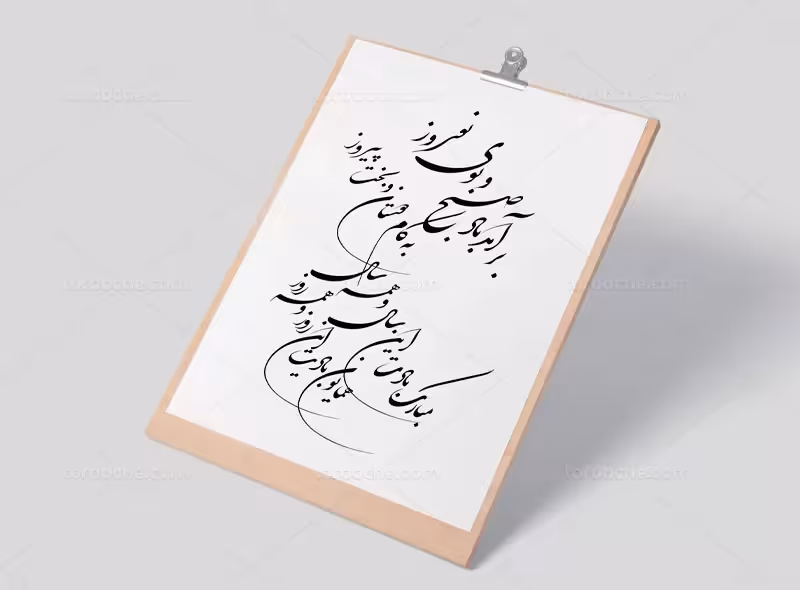 برآمد باد صبح و بوی نوروز
به کام دوستان و بخت پیروز
مبارک بادت این سال و همه سال
همایون بادت این روز و همه روز